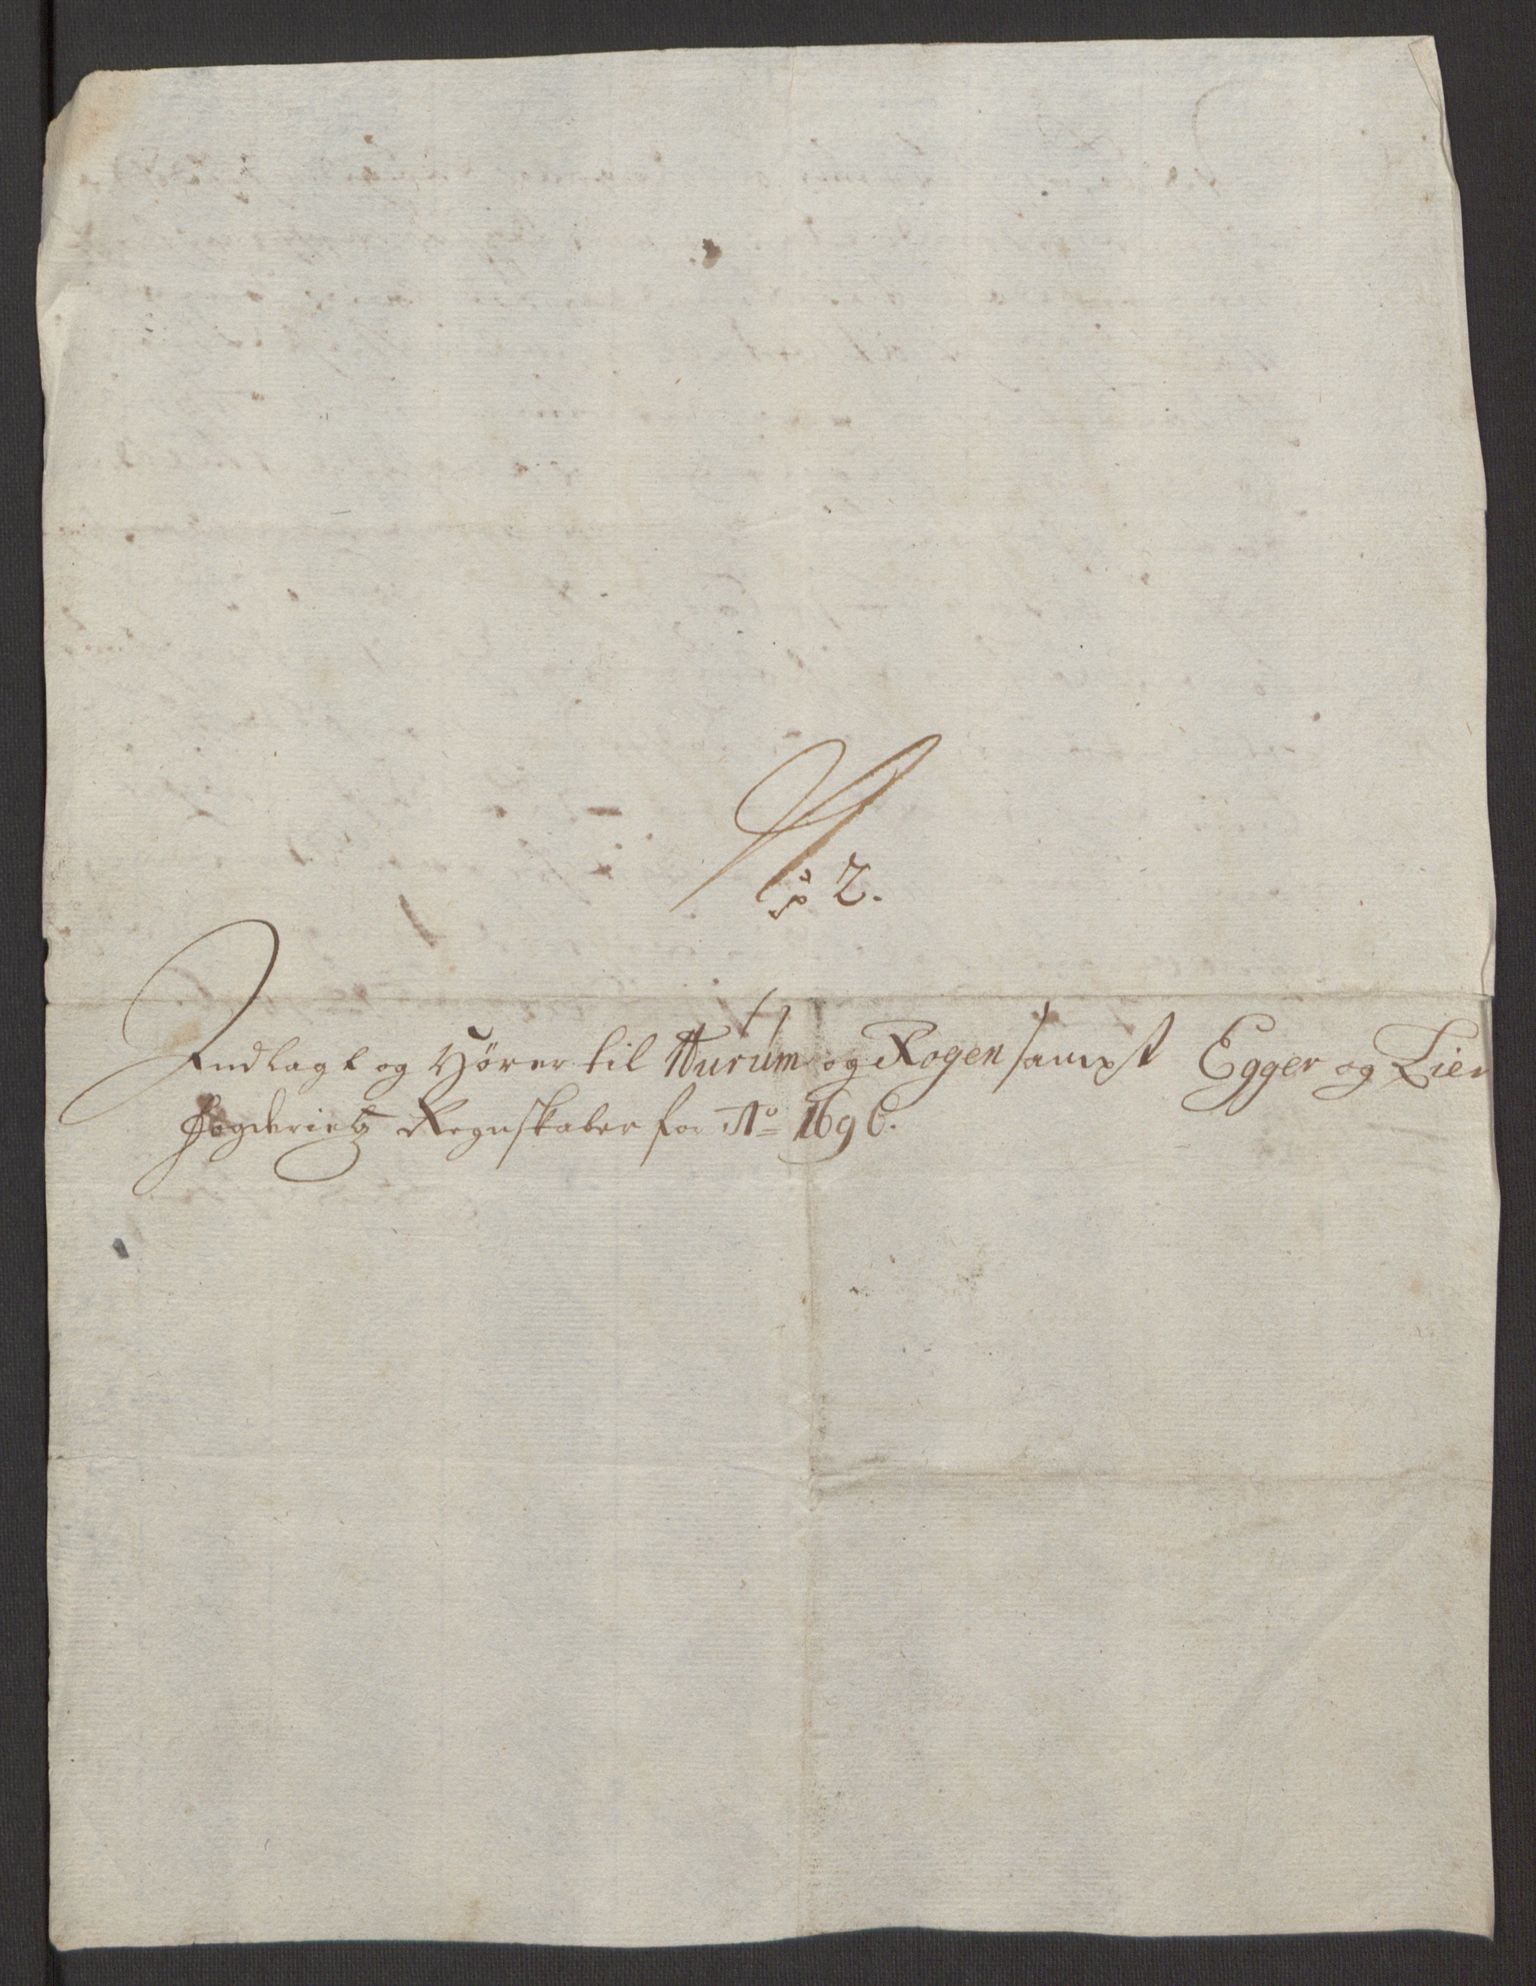 No 2.
Indlagt og Hører til Hurum og Rogen sampt Egger og Lier
fogderietz Regnskaber for Ao 1696.